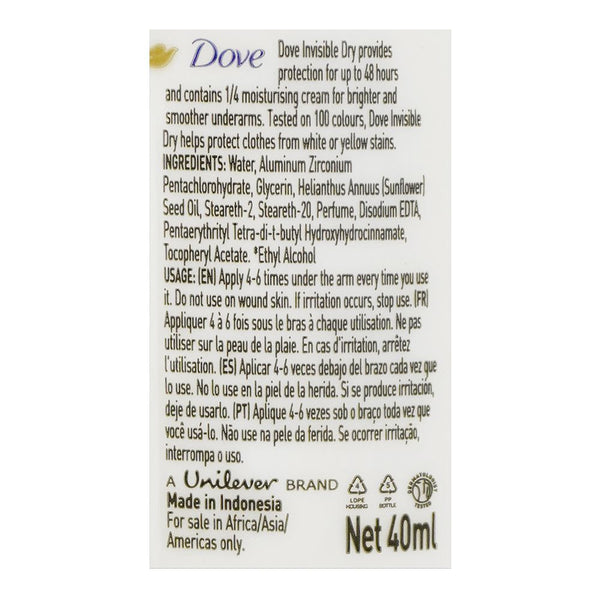 Dove
Dove Invisible Dry provides
protection for up to 48 hours
and contains 1/4 moisturising cream for brighter and
smoother underarms. Tested on 100 colours, Dove Invisible
Dry helps protect clothes from white or yellow stains.
INGREDIENTS: Water, Aluminum Zirconium
Pentachlorohydrate, Glycerin, Helianthus Annuus (Sunflower)
Seed Oil, Steareth-2, Steareth-20, Perfume, Disodium EDTA,
Pentaerythrityl Tetra-di-t-butyl Hydroxyhydrocinnamate,
Tocopheryl Acetate. *Ethyl Alcohol
USAGE: (EN) Apply 4-6 times under the arm every time you use
it. Do not use on wound skin. If irritation occurs, stop use. (FR)
Appliquer 4 à 6 fois sous le bras à chaque utilisation. Ne pas
utiliser sur la peau de la plaie. En cas d'irritation, arrêtez
l'utilisation. (ES) Aplicar 4-6 veces debajo del brazo cada vez que
lo use. No lo use en la piel de la herida. Si se produce irritación,
deje de usarlo. (PT) Aplique 4-6 vezes sob o braço toda vez que
você usá-lo. Não use na pele da ferida. Se ocorrer irritação,
interrompa o uso.
A Unilever BRAND
Made in Indonesia
For sale in Africa/Asia/
Americas only.
4
LDPE
HOUSING
5
PP
BOTTLE
DERMATOLOGIST
TESTED
Net 40ml